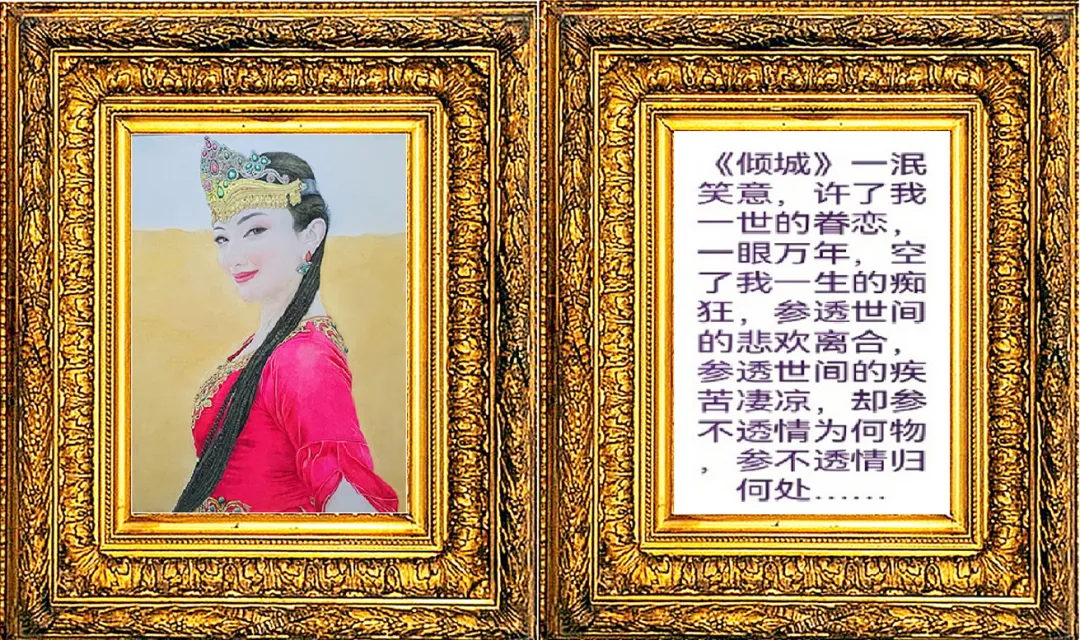 《倾城》一泯
笑意，许了我
一世的眷恋，
一眼万年，空
了我一生的痴
狂，参透世间
的悲欢离合，
参透世间的疾
苦凄凉，却参
不透情为何物
，参不透情归
何处……